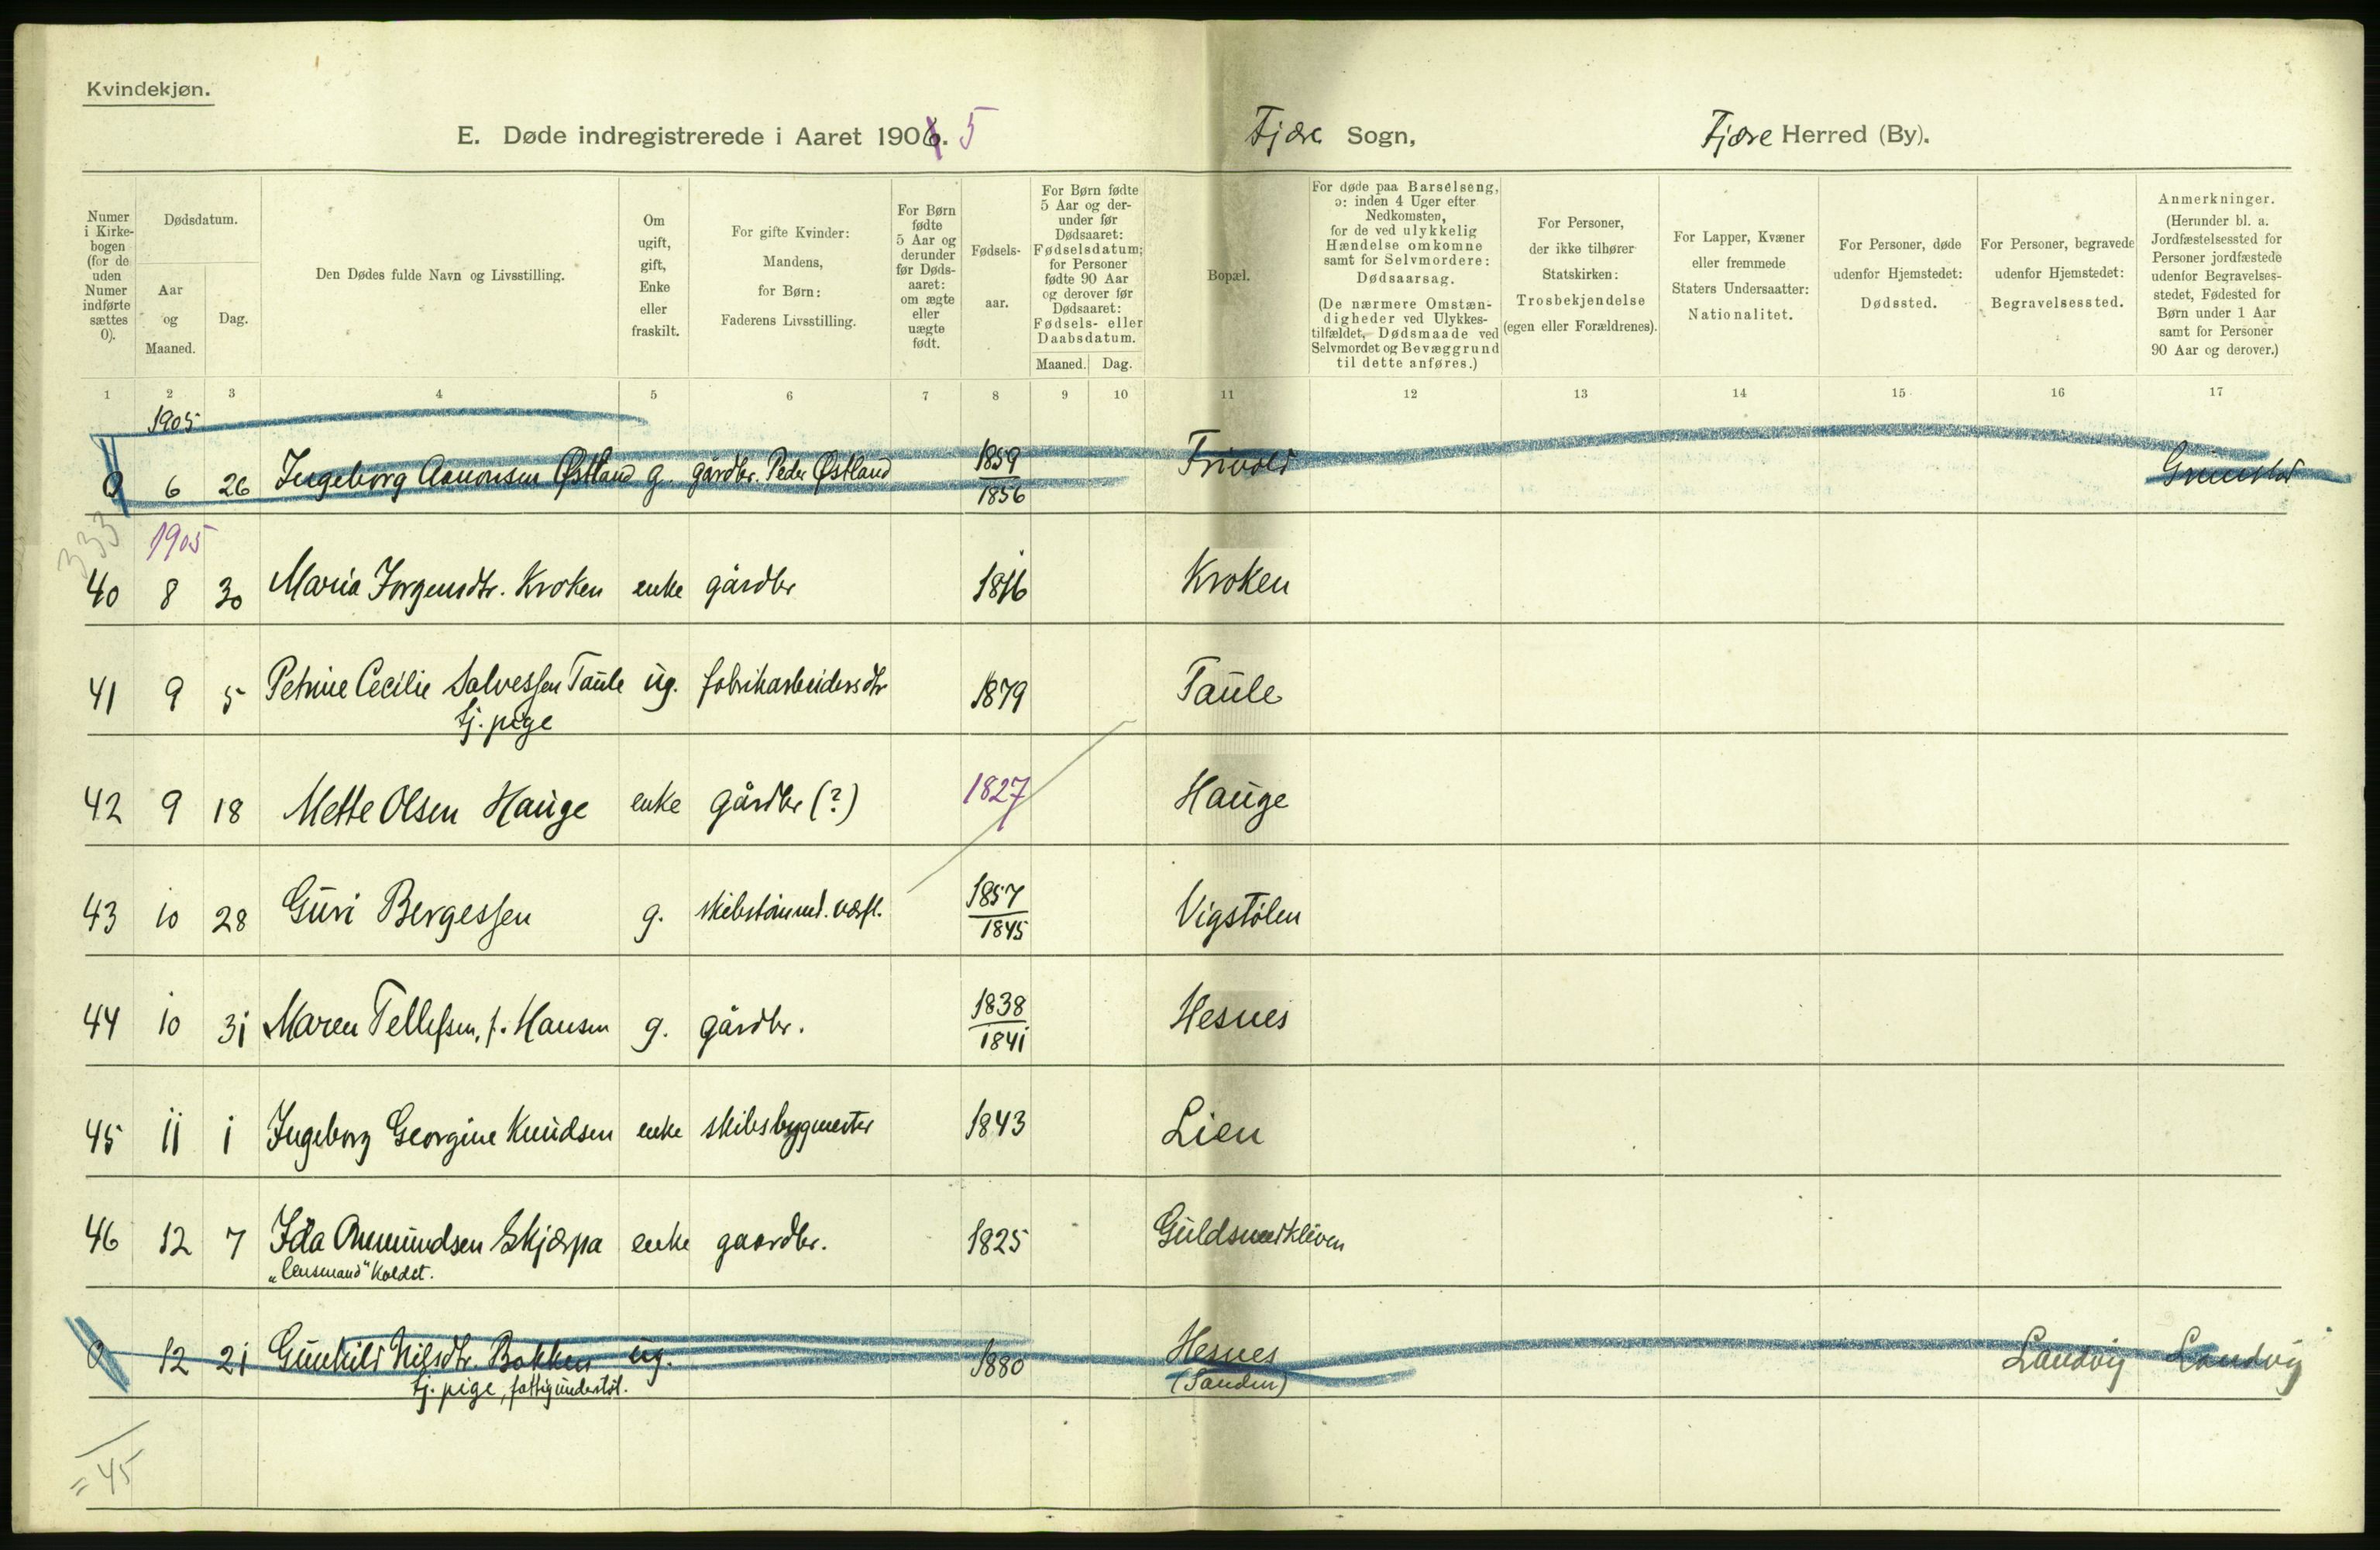 Kvindekjøn.
E. Døde indregistrerede i Aaret 1906. 5 Fjære Sogn, Fjære Herred (By).
Numer i Kirkebogen (for de uden Numer indførte sættes 0).
Dødsdatum.
Aar og Maaned.
Dag.
Den Dødes fulde Navn og Livsstilling.
Om ugift, gift, Enke eller fraskilt.
For gifte Kvinder: Mandens, for Børn: Faderens Livsstilling.
For Børn fødte 5 Aar og derunder før Dødsaaret: om ægte eller uægte født.
Fødselsaar.
For Børn fødte 5 Aar og derunder før Dødsaaret: Fødselsdatum; for Personer fødte 90 Aar og derover før Dødsaaret: Fødsels- eller Daabsdatum.
Maaned. Dag.
Bopæl.
For døde paa Barselseng, ɔ: inden 4 Uger efter Nedkomsten, for de ved ulykkelig Hændelse omkomne samt for Selvmordere: Dødsaarsag.
(De nærmere Omstændigheder ved Ulykkestilfældet, Dødsmaade ved Selvmordet og Bevæggrund til dette anføres.)
For Personer, der ikke tilhører Statskirken: Trosbekjendelse (egen eller Forældrenes).
For Lapper, Kvæner eller fremmede Staters Undersaatter: Nationalitet.
For Personer, døde udenfor Hjemstedet: Dødssted.
For Personer, begravede udenfor Hjemstedet: Begravelsessted.
Anmerkninger.
(Herunder bl. a. Jordfæstelsessted for Personer jordfæstede udenfor Begravelsesstedet, Fødested for Børn under 1 Aar samt for Personer 90 Aar og derover.)
1 2 3 4 5 6 7 8 9 10 11 12 13 14 15 16 17
1905
0 6 26 Ingeborg Aanonsen Østland g. gårdbr. Peder Østland 1859 1856 Frivold Grimstad
333
1905
40 8 30 Maria Jorgensdtr. Kroken enke gårdbr 1816 Kroken
41 9 5 Petrine Cecilie Salvessen Taule ug. fabrikarbeidersdtr 1879 Taule
tj. pige
42 9 18 Mette Olsen Hauge enke gårdbr (?) 1827 Hauge
43 10 28 Guri Bergessen g. skibstømmd. værft. 1857 1845 Vigstølen
44 10 31 Maren Tellefsen, f. Hansen g. gårdbr. 1838 1841 Hesnes
45 11 1 Ingeborg Georgine Knudsen enke skibsbygmester 1843 Lien
46 12 7 Ida Omundsen Skjærpa enke gaardbr. 1825 Guldsmedkleven
„lensmand" kaldet.
0 12 21 Gunhild Nilsdtr. Bakken ug. 1880 Hesnes Landvig Landvig
tj. pige, fattigunderstøt. (Sanden)
= 45